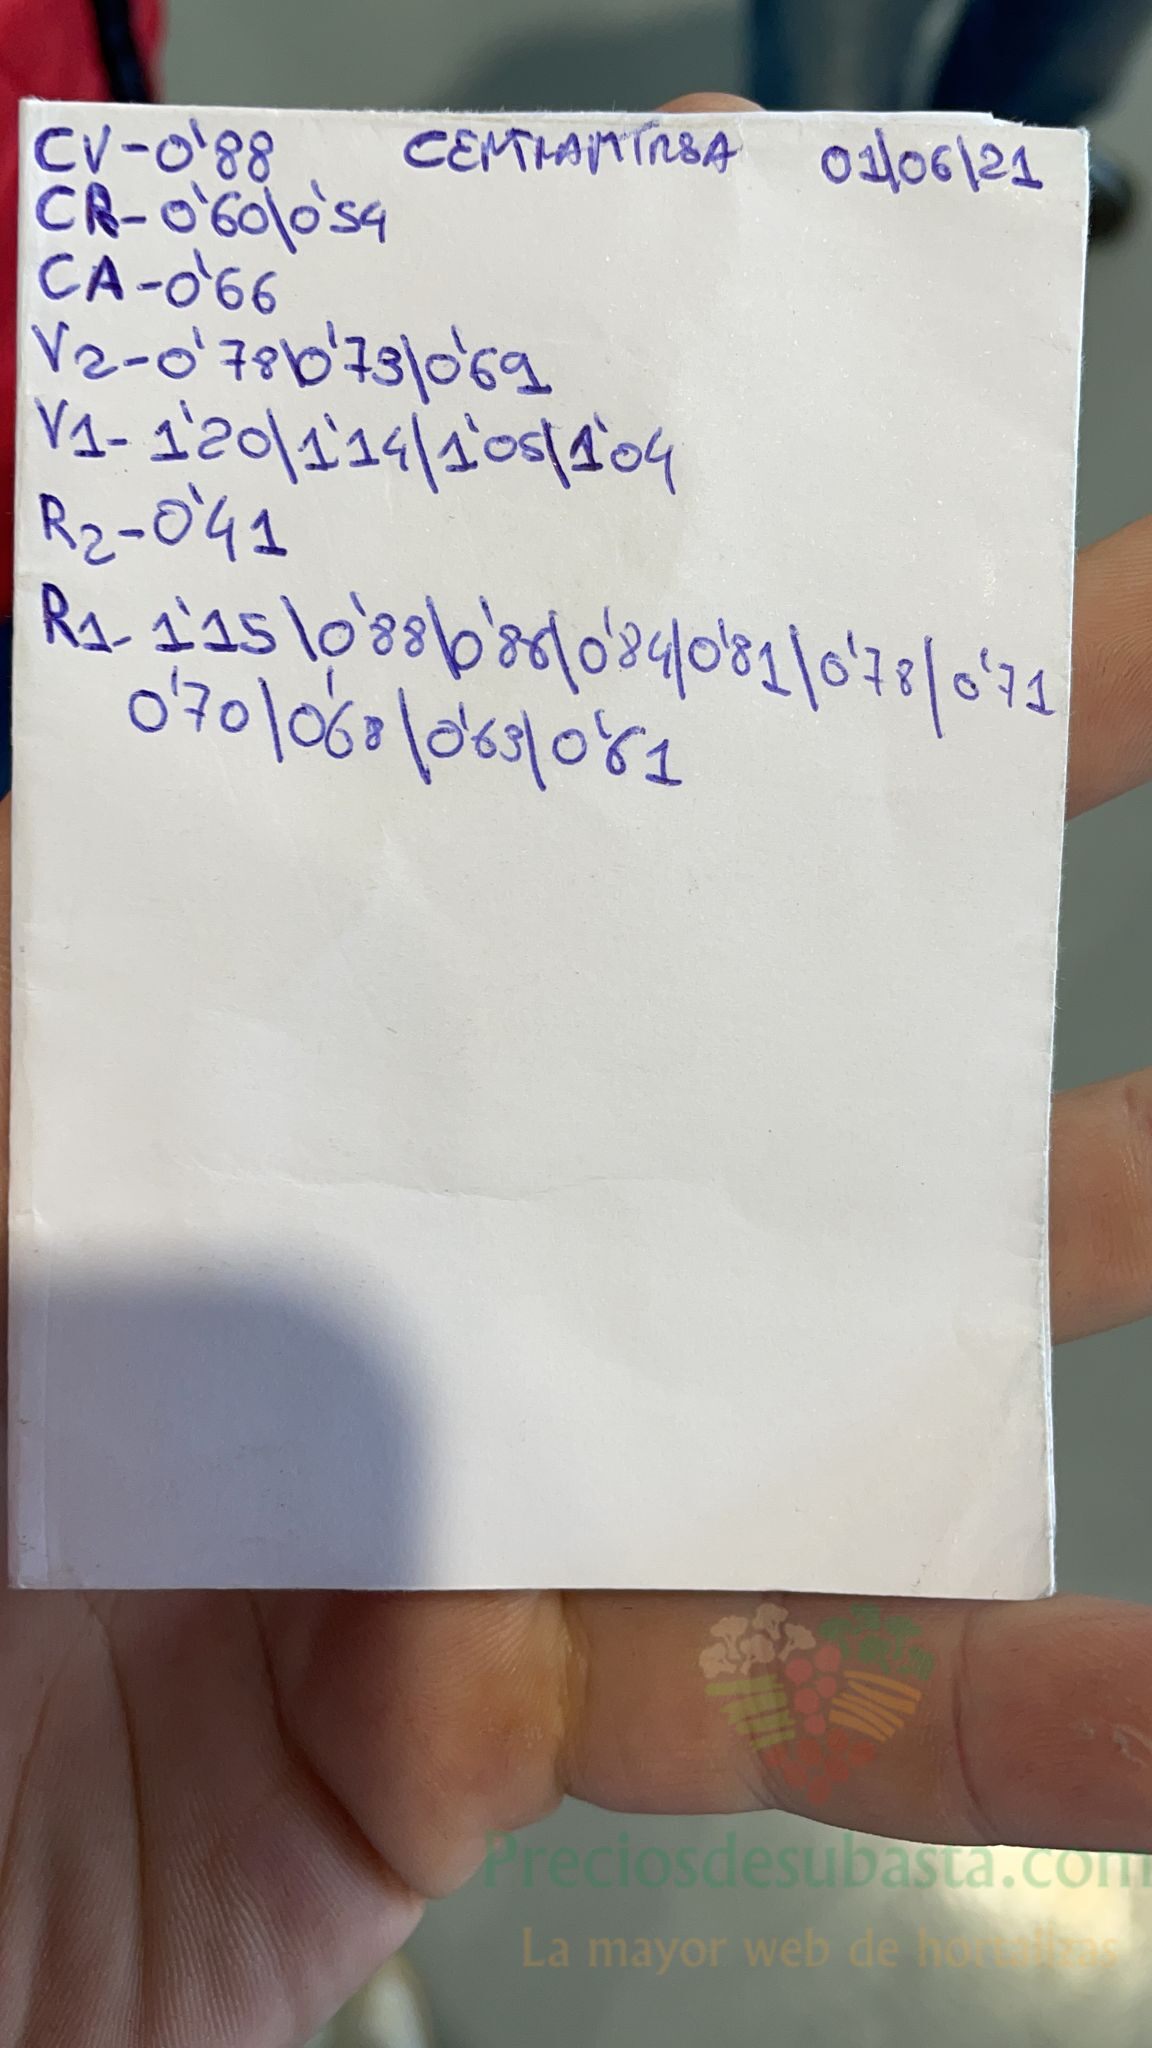 CV-0'88 CEMTRAMIRSA 01/06/21
CR-0'60/0'54
CA-0'66
V2-0'78/0'73/0'69
V1-1'20/1'14/1'05/1'04
R2-0'41
R1-1'15\0'88/0'86/0'84/0'81/0'78/0'71
0'70/0'68/0'63/0'61
Preciosdesubasta.com
La mayor web de hortalizas